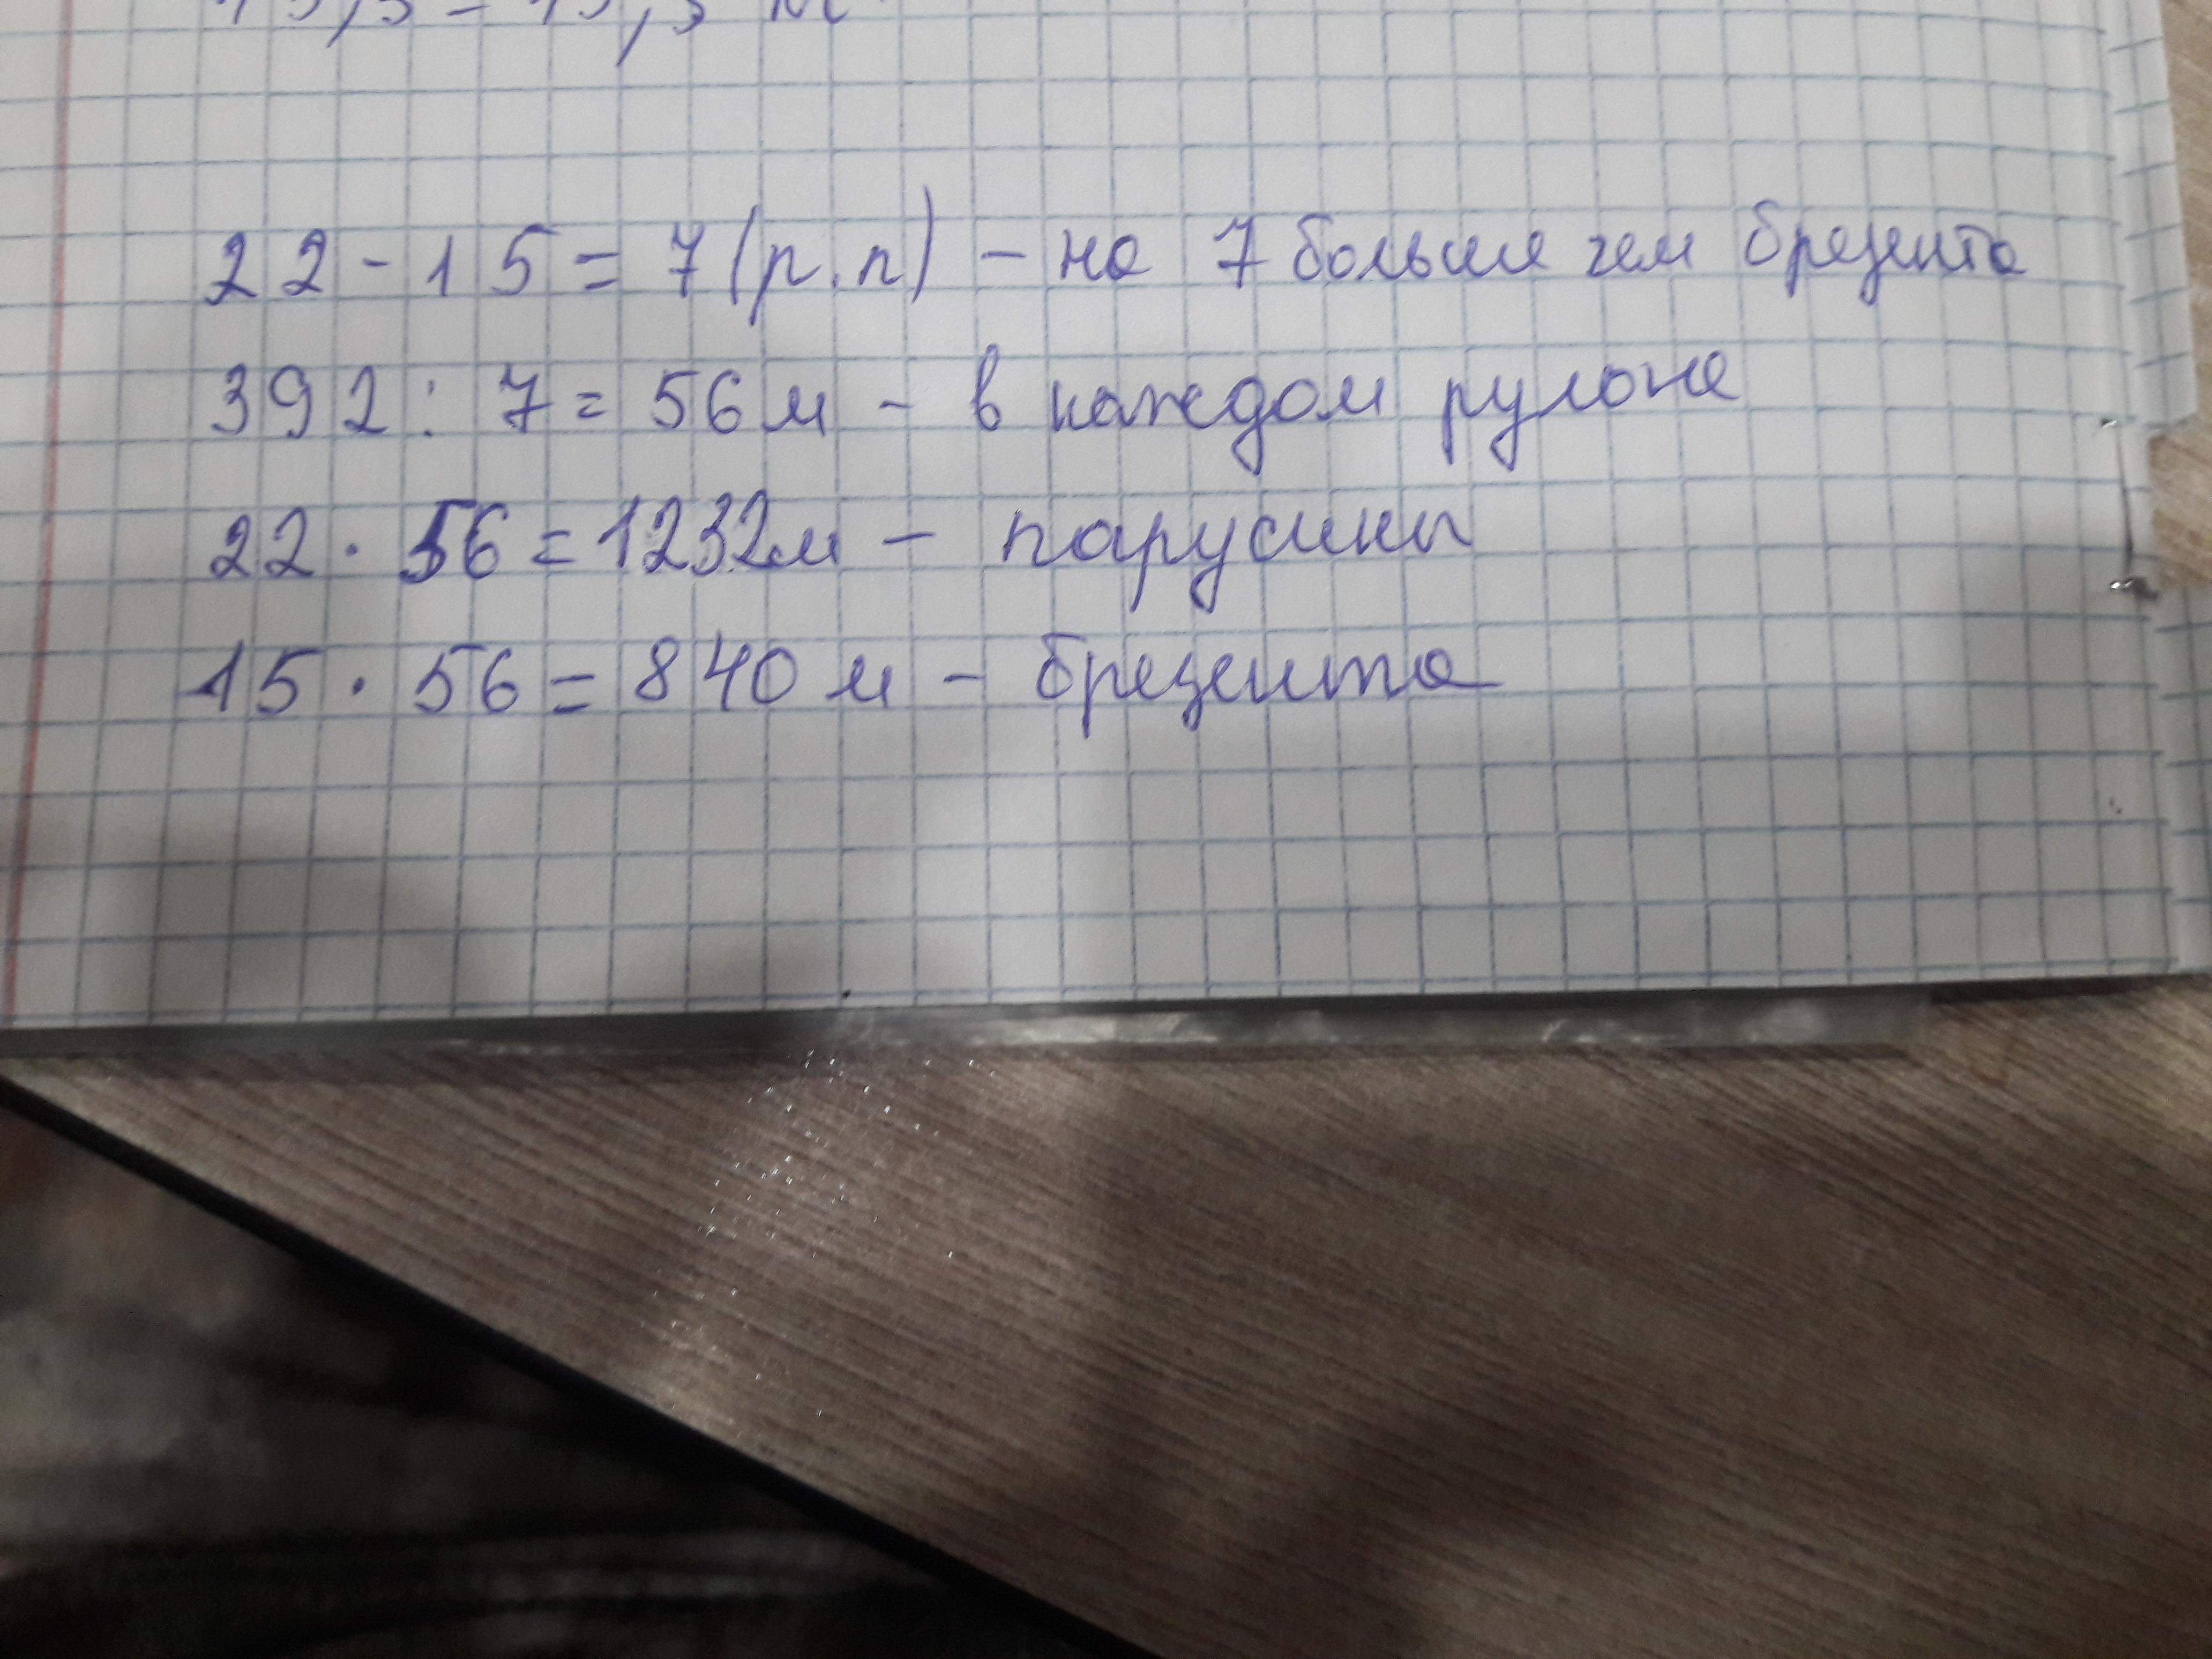 22 - 15 = 7 (р.п) - на 7 больше чем брезента
392 : 7 = 56 м - в каждом рулоне
22 · 56 = 1232 м - парусины
15 · 56 = 840 м - брезента